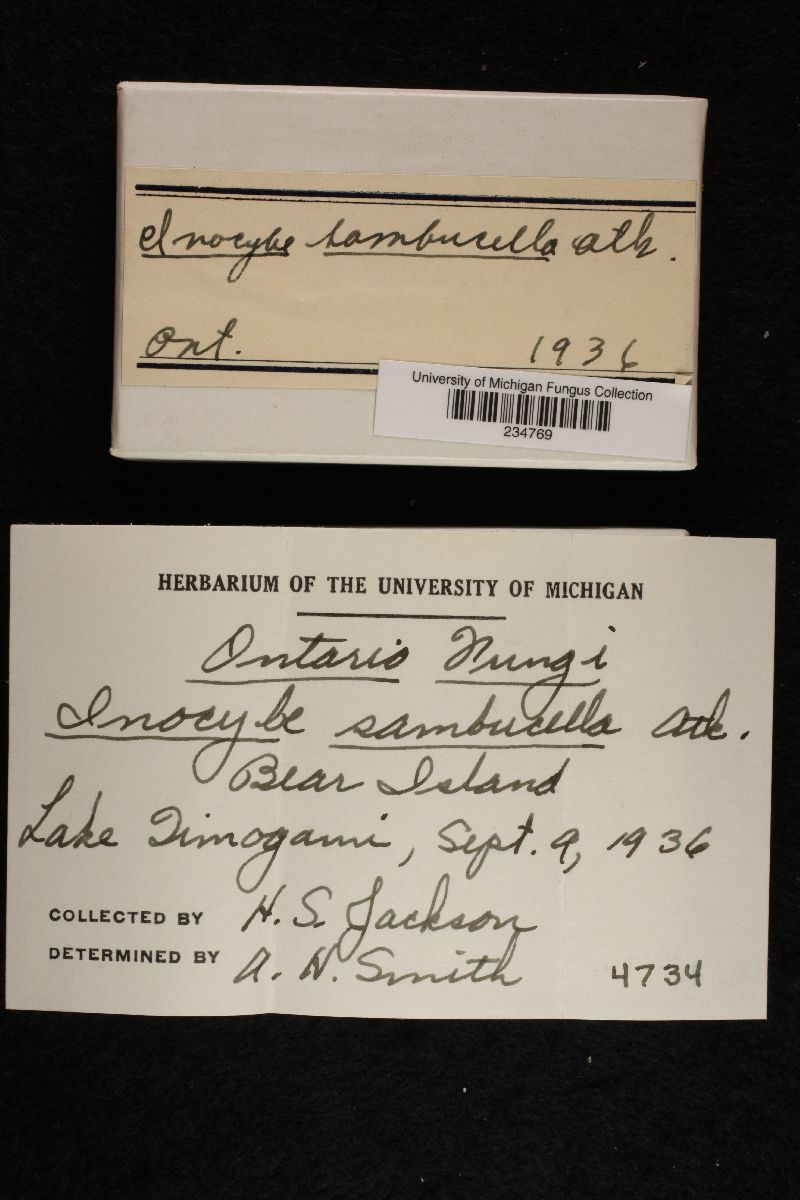 Inocybe sambucella Atk.
Ont. 1936
University of Michigan Fungus Collection
234769
HERBARIUM OF THE UNIVERSITY OF MICHIGAN
Ontario Fungi
Inocybe sambucella Atk.
Bear Island
Lake Timogami, Sept. 9, 1936
COLLECTED BY H. S. Jackson
DETERMINED BY A. H. Smith 4734